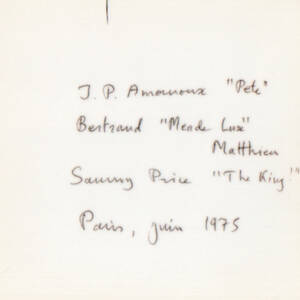 J. P. Amouroux "Pete"
Bertrand "Meade Lux"
Matthieu
Sammy Price "The King"
Paris, juin 1975